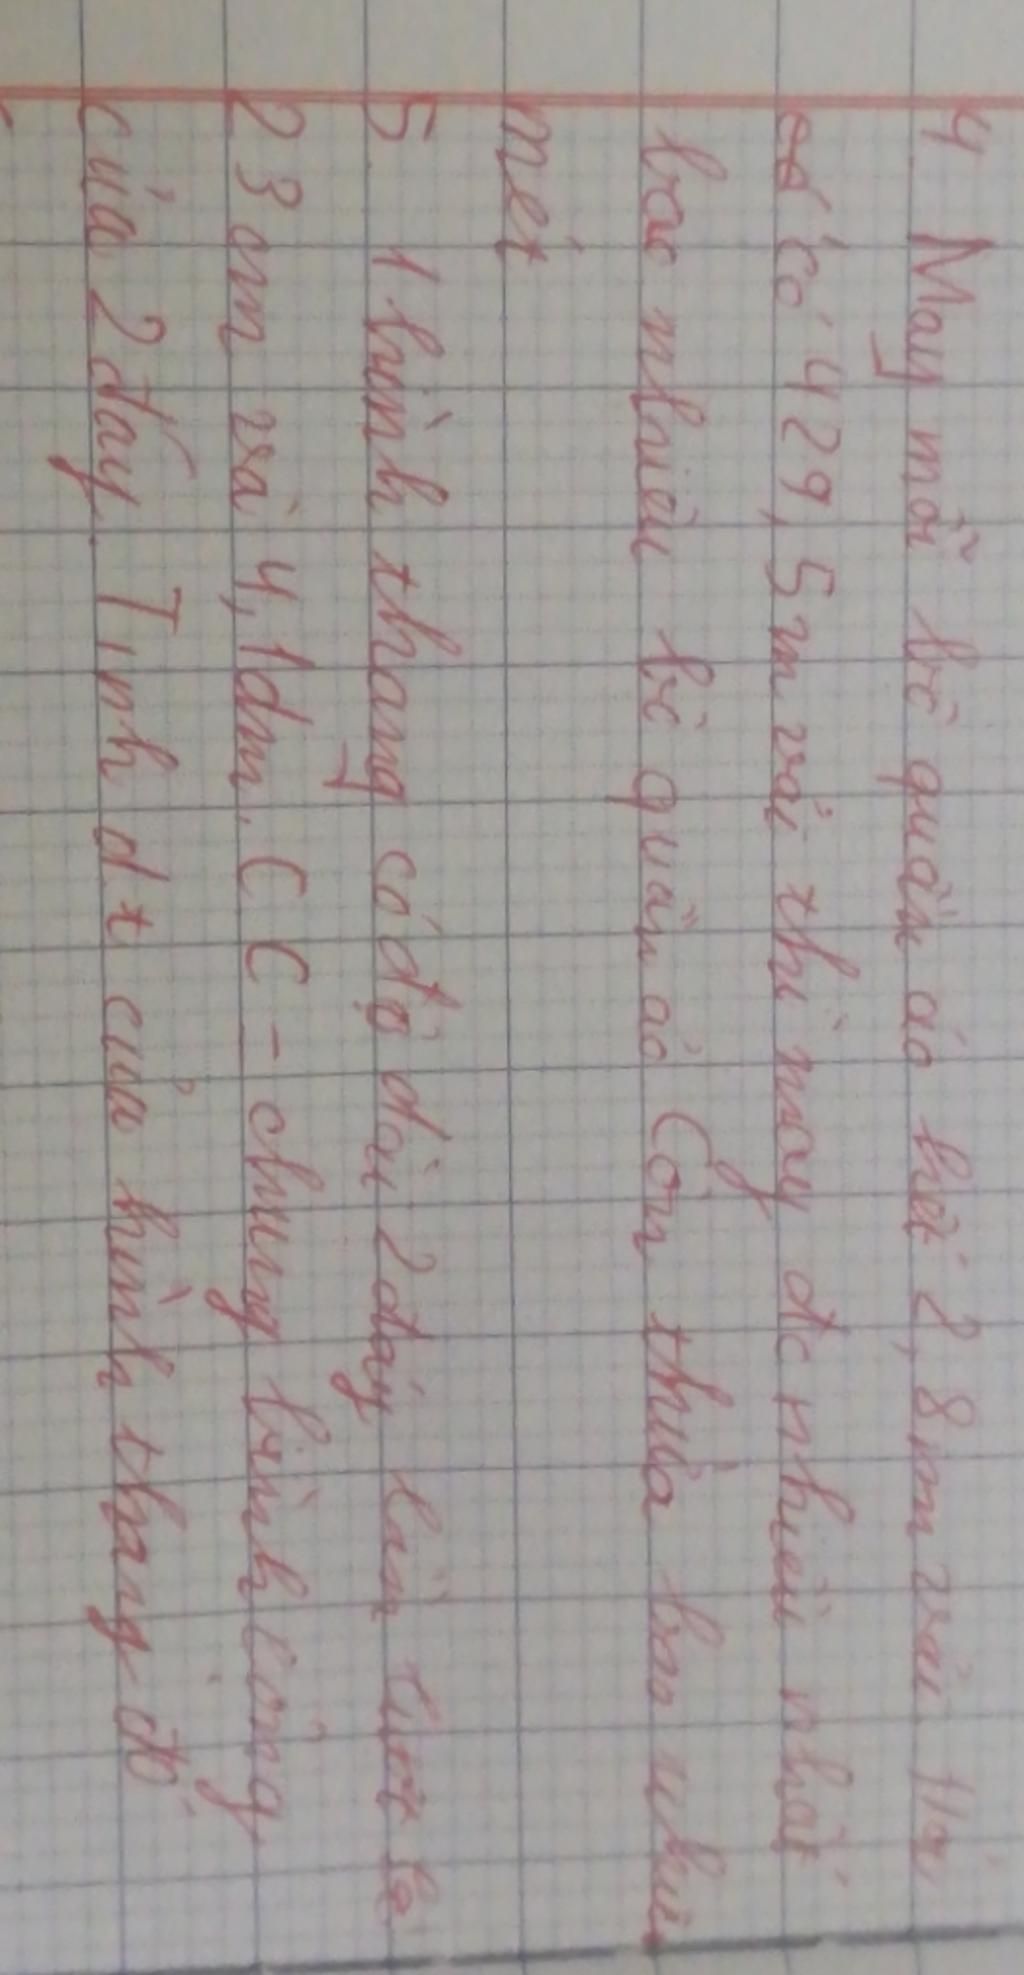 4. May mỗi bộ quần áo hết 2,8m vải. Hỏi
có 429,5m vải thì may đc nhiều nhất
bao nhiêu bộ quần áo. Còn thừa bao nhiêu
mét
5. 1 hình thang có độ dài 2 đáy lần lượt là
23 cm và 4,1dm. CC - chung bình cộng
của 2 đáy. Tính dt của hình thang đó.